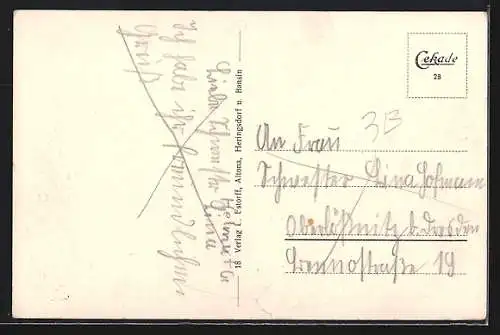 Cekade
28
18 Verlag L. Estorff, Altona, Heringsdorf u. Bansin
3B
An Frau
Schwester Lina Hofmann
Oberlößnitz b. Dresden
Brennostraße 19
Ich habe ihr
Gruß
Liebe Schwester Lina
Helmut G